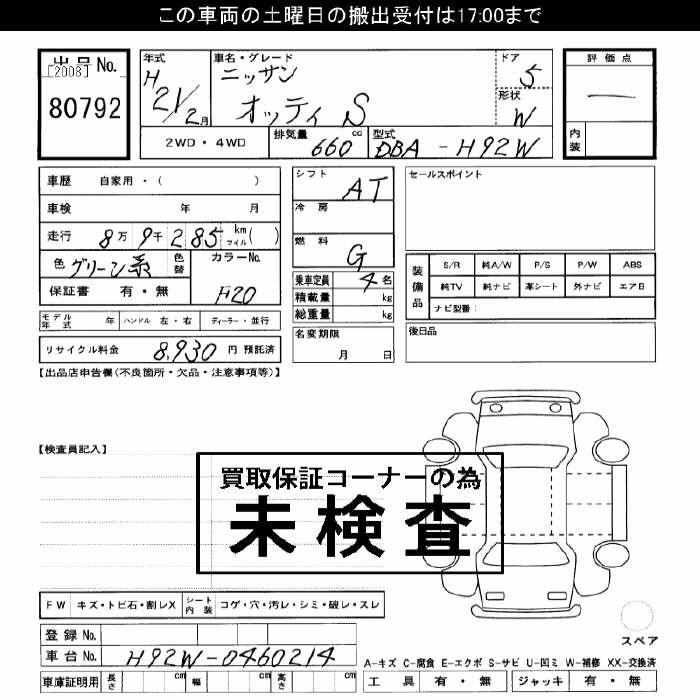 この車両の土曜日の搬出受付は17:00まで
出品No.
[2008]
80792
年式
H21/2月
車名・グレード
ニッサン
オッティ S
ドア
5
形状
W
評価点
—
内装
2WD・4WD
排気量 660 cc
型式 DBA-H92W
車歴 自家用・( )
車検 年 月
走行 8万9千285 km マイル ( )
色 グリーン系 色替
カラーNo.
F20
保証書 有・無
モデル年式 年 ハンドル 左・右 ディーラー・並行
リサイクル料金 8,930 円 預託済
シフト
AT
冷房
燃料
G
乗車定員 4名
積載量 kg
総重量 kg
名変期限
月 日
セールスポイント
装備品
S/R 純A/W P/S P/W ABS
純TV 純ナビ 革シート 外ナビ エアB
ナビ型番：
後日品
【出品店申告欄(不良箇所・欠品・注意事項等)】
【検査員記入】
買取保証コーナーの為
未検査
FW キズ・トビ石・割レX シート内装 コゲ・穴・汚レ・シミ・破レ・スレ
登録No.
車台No. H92W-0460214
車庫証明用 長さ cm 幅 cm 高さ cm
スペア
A-キズ C-腐食 E-エクボ S-サビ U-凹ミ W-補修 XX-交換済
工具 有・無 ジャッキ 有・無